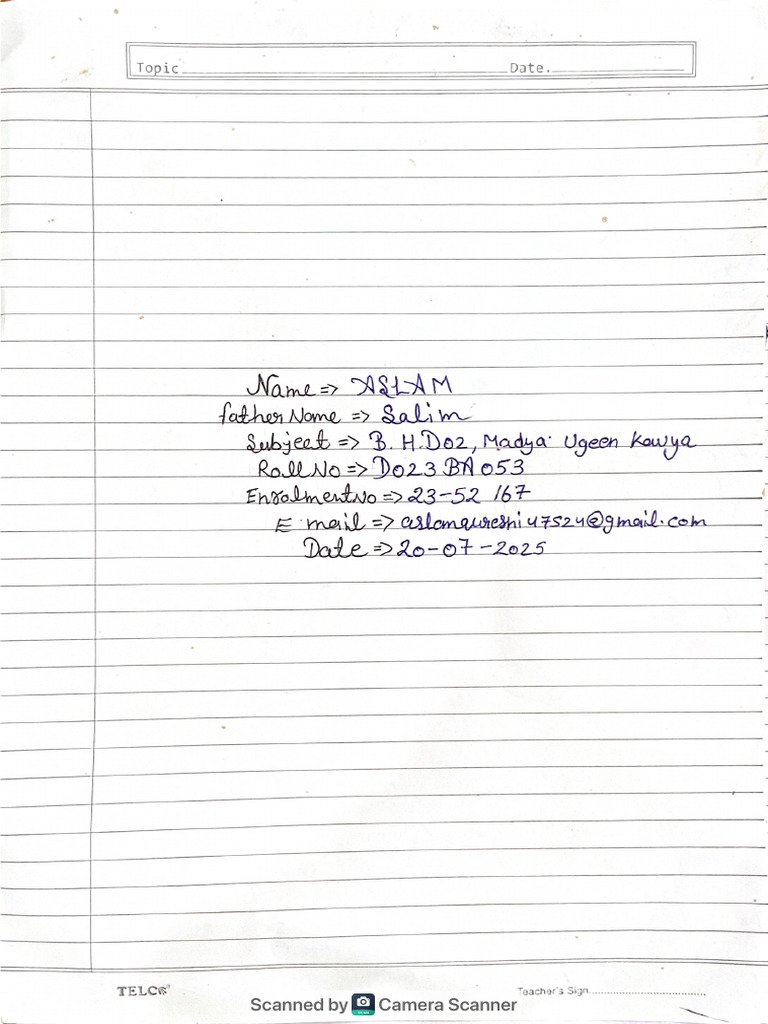 Topic Date.
Name => ASLAM
father Name => Salim
Subjeet => B.H.D02, Madya Ugeen Kavya
Roll No => D023BA053
Enrolment No => 23-52 167
E mail => aslamqureshi47524@gmail.com
Date => 20-07-2025
TELCO
Teacher's Sign.
Scanned by Camera Scanner